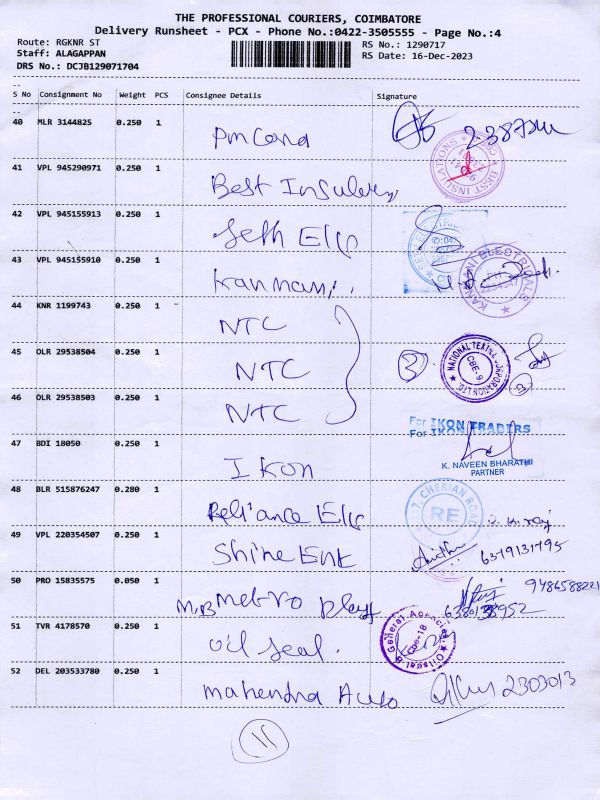 THE PROFESSIONAL COURIERS, COIMBATORE
Delivery Runsheet - PCX - Phone No.:0422-3505555 - Page No.:4
Route: RGKNR ST
Staff: ALAGAPPAN
DRS No.: DCJB129071704
RS No.: 1290717
RS Date: 16-Dec-2023
S No Consignment No Weight PCS Consignee Details Signature
40 MLR 3144825 0.250 1
41 VPL 945290971 0.250 1 Best
BEST INSULATIONS
42 VPL 945155913 0.250 1 Seth Elec
43 VPL 945155910 0.250 1 Kannan
KANNAN ELECTRICALS
44 KNR 1199743 0.250 1 NTC
45 OLR 29538504 0.250 1 NTC 3
NATIONAL TEXTILE CORPORATION LTD.
CBE-9
3
46 OLR 29538503 0.250 1 NTC
For IKON TRADERS
For IKON TRADERS
K. NAVEEN BHARATHI
PARTNER
47 BDI 18050 0.250 1 Ikon
48 BLR 515876247 0.280 1 Reliance Elec
7, CHERIAN ROAD
RE
49 VPL 220354507 0.250 1 Shine Ent 6379131795
50 PRO 15835575 0.050 1 M.B Metro 9486588221
51 TVR 4178570 0.250 1 Oil Seal.
Oilseal & General Agencies
Cbe-18
52 DEL 203533780 0.250 1 Mahendra Auto 2303013
11